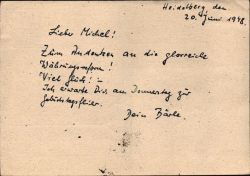 Heidelberg, den
20. Juni 1948.
Liebe Michel!
Zum Andenken an die glorreiche
Währungsreform!
Viel Glück! –
Ich erwarte Dich am Donnerstag zur
Geburtstagsfeier.
Dein Bärle.